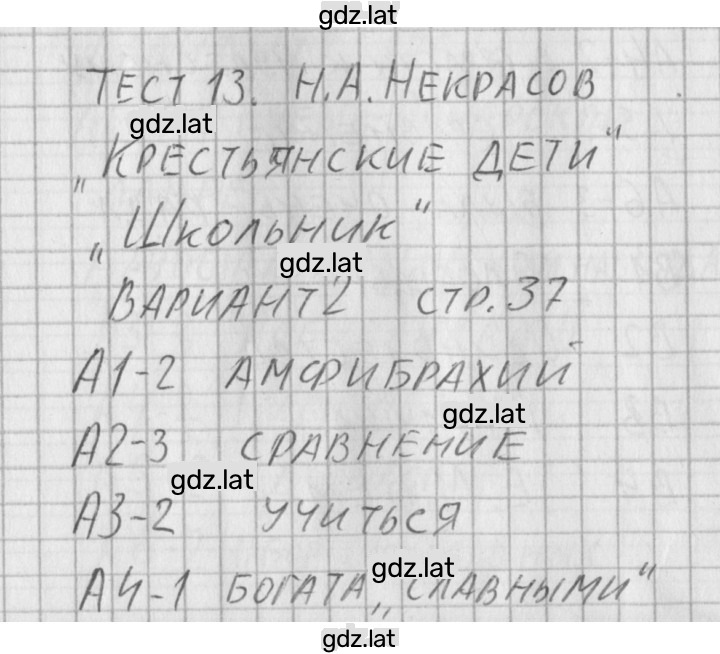 gdz.lat
ТЕСТ 13. Н.А.НЕКРАСОВ
gdz.lat
„КРЕСТЬЯНСКИЕ ДЕТИ“
„ШКОЛЬНИК“
gdz.lat
ВАРИАНТ 2 СТР. 37
А1-2 АМФИБРАХИЙ
gdz.lat
А2-3 СРАВНЕНИЕ
gdz.lat
А3-2 УЧИТЬСЯ
gdz.lat
А4-1 БОГАТА „СЛАВНЫМИ“
gdz.lat